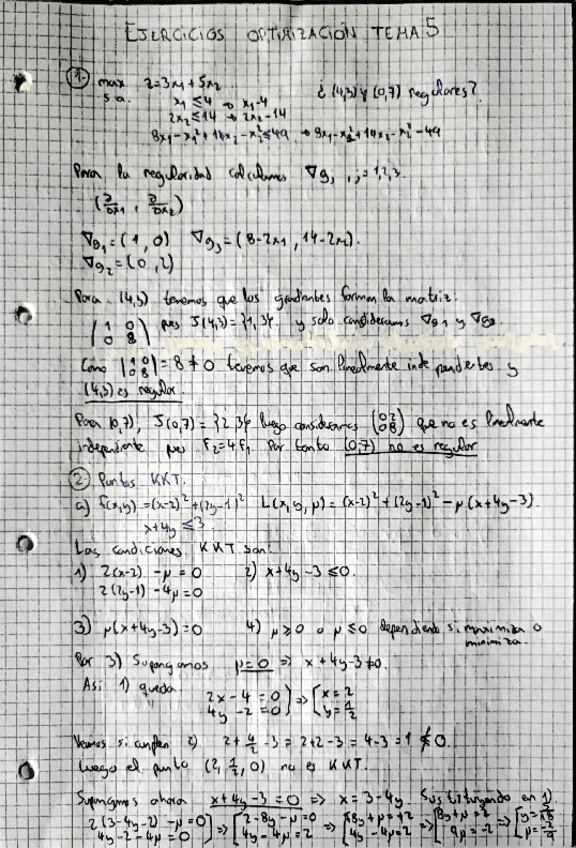 EJERCICIOS OPTIMIZACIÓN TEMA 5
1. max z=3x₁+5x₂ ¿(4,3) y (0,7) regulares?
s.a. x₁≤4 → x₁-4
2x₂≤14 → 2x₂-14
8x₁-x₁²+14x₂-x₂²≤49 → 8x₁-x₁²+14x₂-x₂²-49
Para la regularidad calculamos ∇gⱼ, j=1,2,3.
(∂/∂x₁, ∂/∂x₂)
∇g₁=(1,0) ∇g₃=(8-2x₁, 14-2x₂).
∇g₂=(0,2)
Para (4,3) tenemos que los gradientes forman la matriz:
(1 0
0 8) pues J(4,3)={1,3}. y solo consideramos ∇g₁ y ∇g₃.
Como |1 0
0 8|=8≠0 tenemos que son linealmente independientes y
(4,3) es regular.
Para (0,7), J(0,7)={2,3} luego consideramos (0 2
0 8) que no es linealmente
independiente pues F₂=4F₁. Por tanto (0,7) no es regular
2. Puntos KKT.
a) f(x,y)=(x-2)²+(2y-1)² L(x,y,μ)=(x-2)²+(2y-1)²-μ(x+4y-3).
x+4y≤3
Las condiciones KKT son:
1) 2(x-2)-μ=0 2) x+4y-3≤0.
2(2y-1)-4μ=0
3) μ(x+4y-3)=0 4) μ≥0 o μ≤0 dependiendo si maximiza o
minimiza.
Por 3) Supongamos μ=0 ⇒ x+4y-3≠0.
Así 1) queda
2x-4=0
4y-2=0 ⇒ [x=2
y=1/2
Veamos si cumplen 2) 2+4/2-3=2+2-3=4-3=1≰0.
Luego el punto (2,1/2,0) no es KKT.
Supongamos ahora x+4y-3=0 ⇒ x=3-4y. Sustituyendo en 1)
2(3-4y-2)-μ=0
4y-2-4μ=0 ⇒ [2-8y-μ=0
4y-4μ=2 ⇒